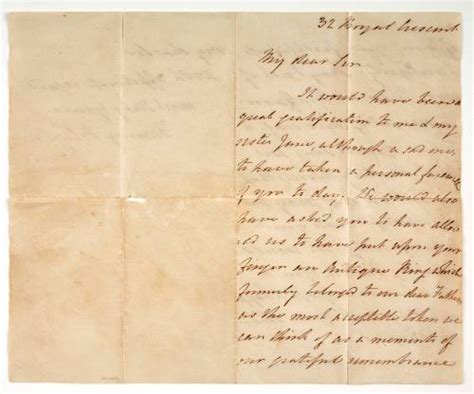 32 Royal Crescent
My dear Sir
It would have been a
great gratification to me & my
sister Jane, although a sad one,
to have taken a personal farewell
of you to day. We would also
have asked you to have allow
ed us to have put upon your
finger an Antique Ring which
formerly belonged to our dear Father
as the most acceptible token we
can think of as a memento of
our grateful remembrance